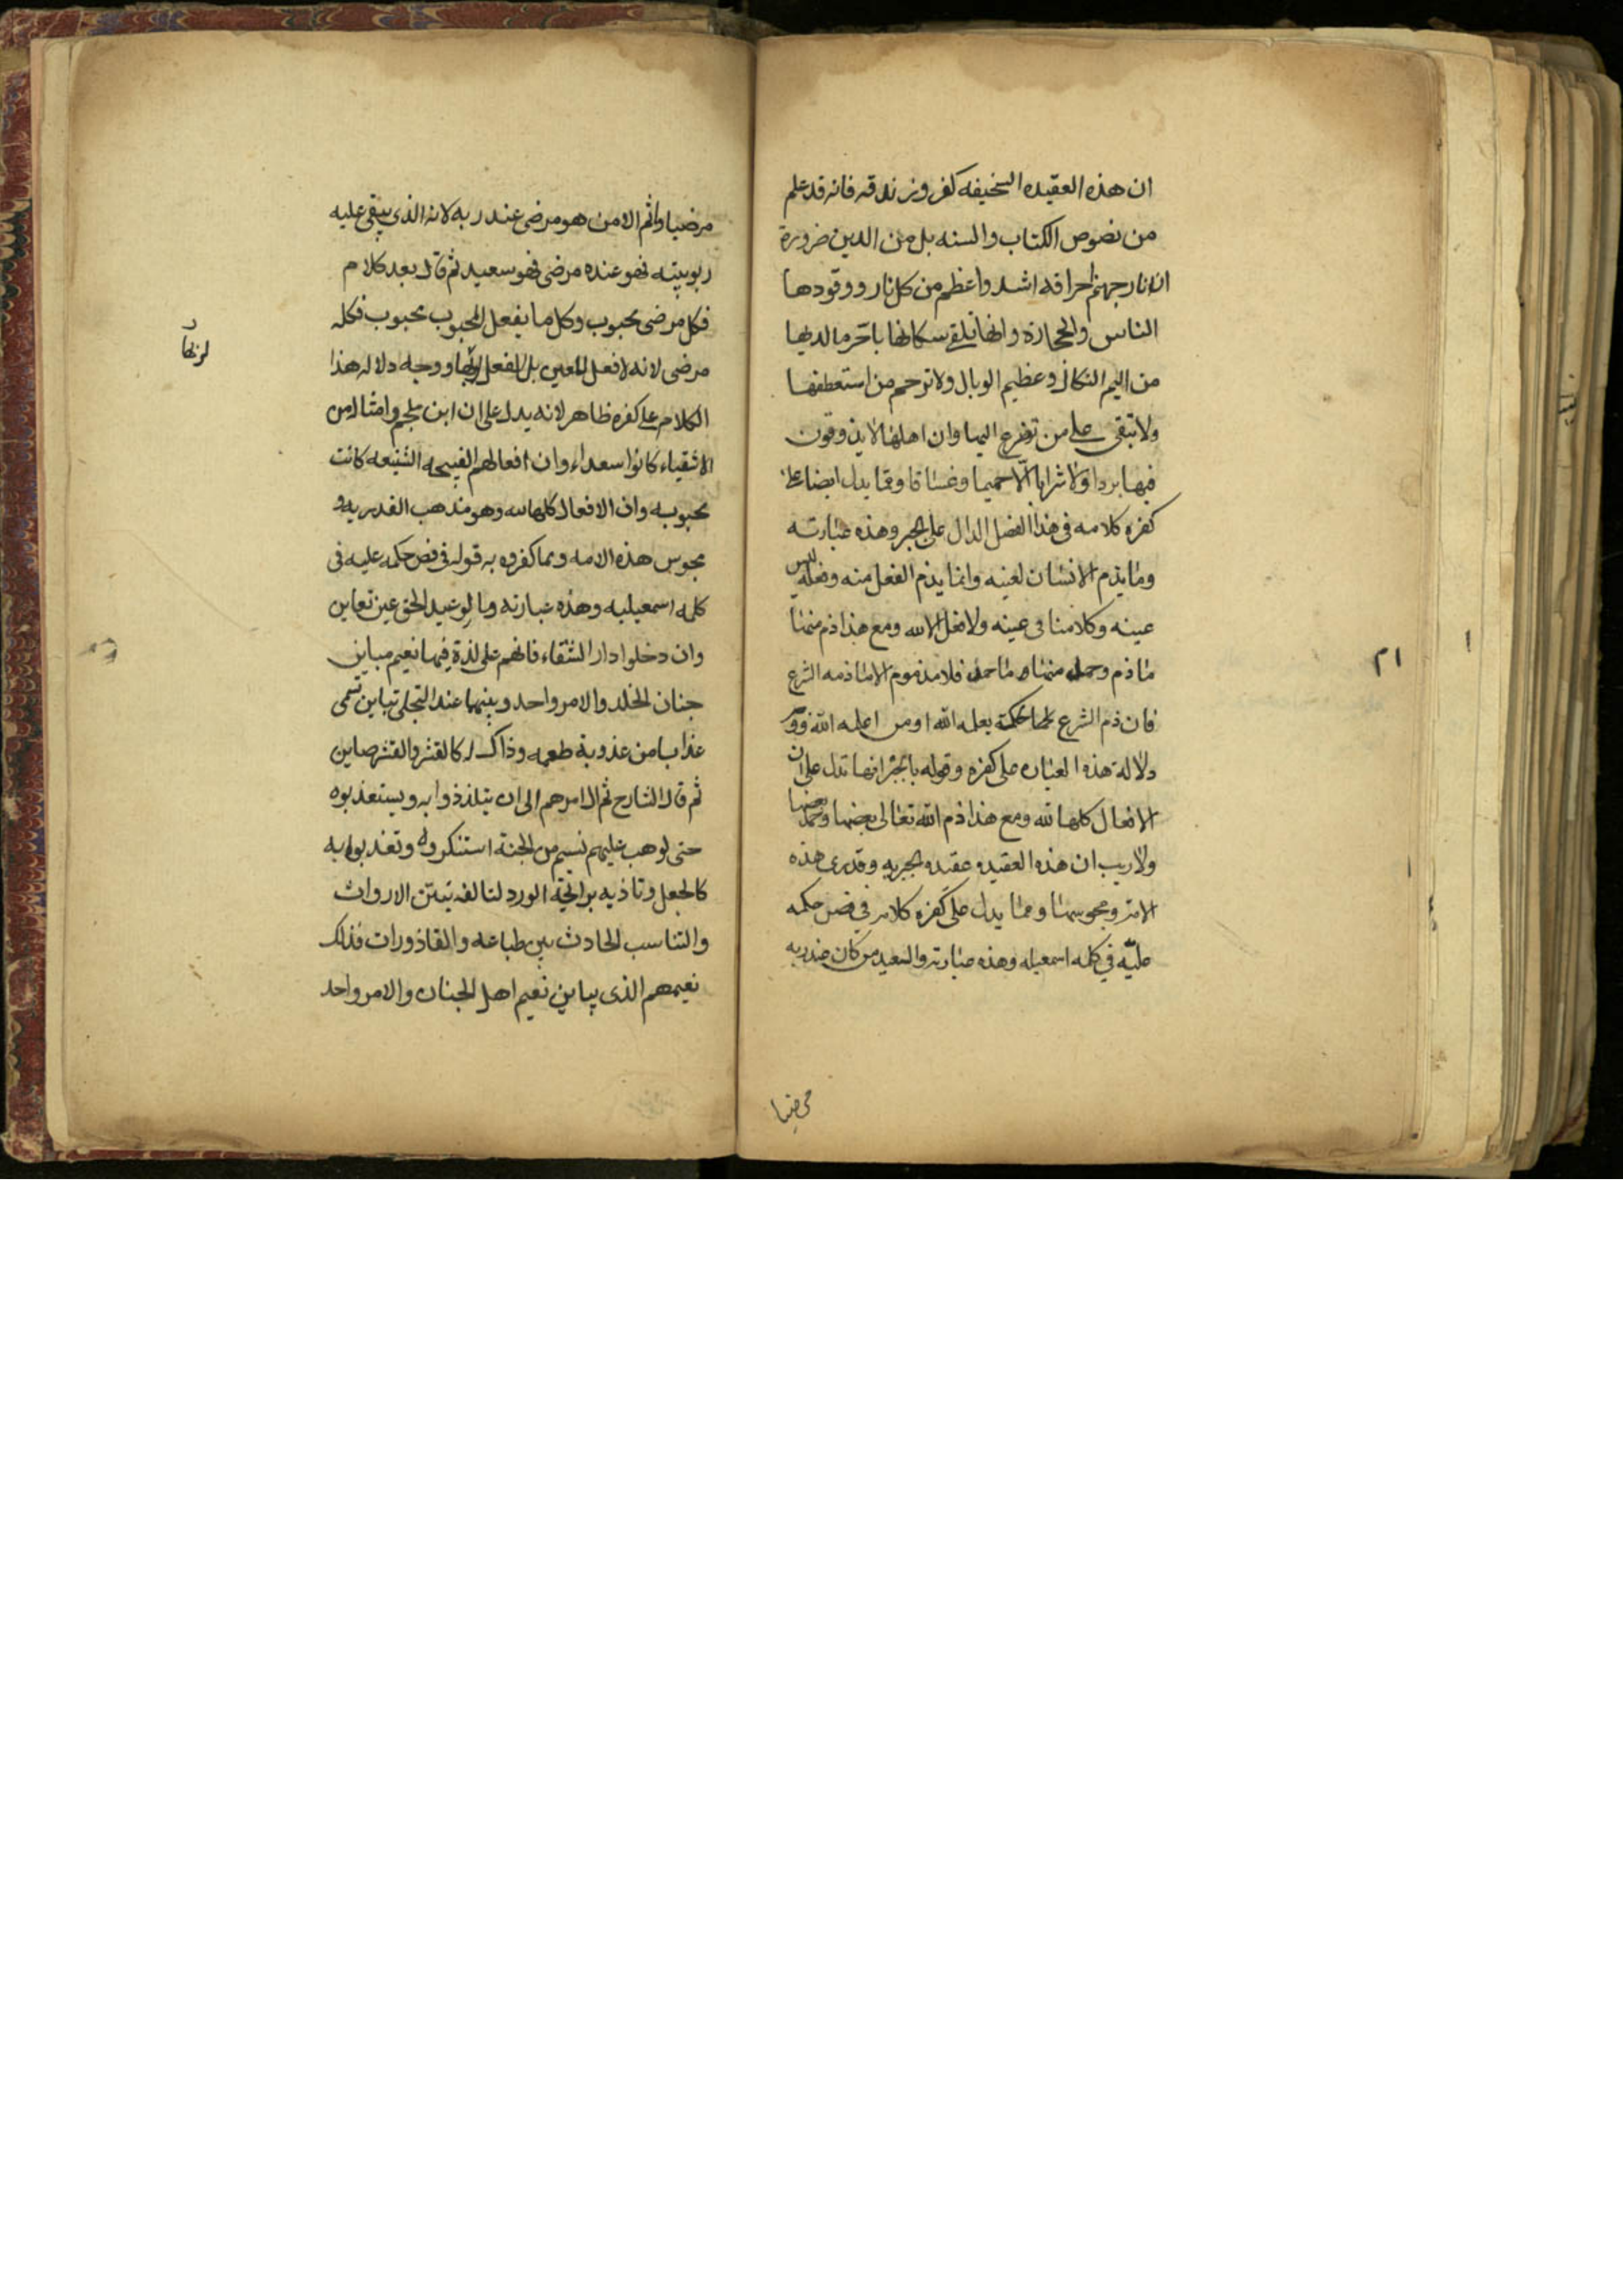 ان هذه العقيده السخيفه كفر وزندقه فانه قد علم
من نصوص الكتاب والسنه بل من الدين ضرورة
ان نار جهنم احراقه اشد واعظم من كل نار ووقودها
الناس والحجارة وانها تلقى سكانها باحر ما لديها
من اليم النكال وعظيم الوبال ولا ترحم من استعطفها
ولا تبقى على من تضرع اليها وان اهلها لا يذوقون
فيها بردا ولا شرابا الّا حميما وغساقا ومما يدل ايضا على
كفره كلامه فى هذا الفصل الدال على الجبر وهذه عبارته
وما يذم الانسان لعينه وانما يذم الفعل منه وفعله ليس
عينه وكلامنا فى عينه ولا فعل الا لله ومع هذا ذم منها
ما ذم وحمد منها ما حمد فلا مذموم الا ما ذمه الشرع
فان ذم الشرع لحكمة يعلمه الله او من اعلمه الله
دلالة هذه العبارة على كفره وقوله بالجبر انها تدل على ان
الافعال كلها لله ومع هذا ذم الله تعالى بعضها وحمد بعضها
ولا ريب ان هذه العقيده عقيده الجبريه وقدرى هذه
الامة ومجوسها ومما يدل على كفره كلامه في فص حكمه
عليّه في كلمه اسمعيليه وهذه عبارته والسعيد من كان عند ربه
مرضيا
٢١
مرضيا وما ثم الا من هو مرضى عند ربه لانه الذى يبقى عليه
ربوبيته فهو عنده مرضى فهو سعيد ثم قال بعد كلام
فكل مرضى محبوب وكل ما يفعل المحبوب محبوب فكله
مرضى لانه لا فعل للعين بل الفعل لربها ووجه دلاله هذا
لربها
الكلام على كفره ظاهر لانه يدل على ان ابن ملجم وامثاله من
الاشقياء كانوا سعداء وان افعالهم القبيحه الشنيعه كانت
محبوبه وان الافعال كلها لله وهو مذهب القدريه
مجوس هذه الامه ومما كفروه به قوله فى فص حكمه عليه فى
كلمه اسمعيليه وهذه عبارته وما لوعيد الحق عين تعاين
وان دخلوا دار الشقاء فانهم على لذة فيها نعيم مباين
جنان الخلد والامر واحد وبينهما عند التجلى تباين تسمى
عذابا من عذوبة طعمه وذاك له كالقشر والقشر صاين
ثم قال الشارح ثم ال امرهم الى ان يتلذذوا به ويستعذبوه
حتى لو هب عليهم نسيم من الجنة استنكروه وتعذبوا به
كالجعل وتاذيه برايحة الورد لتالفه بنتن الارواث
والتناسب الحادث بين طباعه والقاذورات فذلك
نعيمهم الذى يباين نعيم اهل الجنان والامر واحد